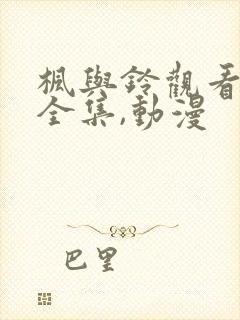 楓與鈴觀看
全集,動漫
巴里